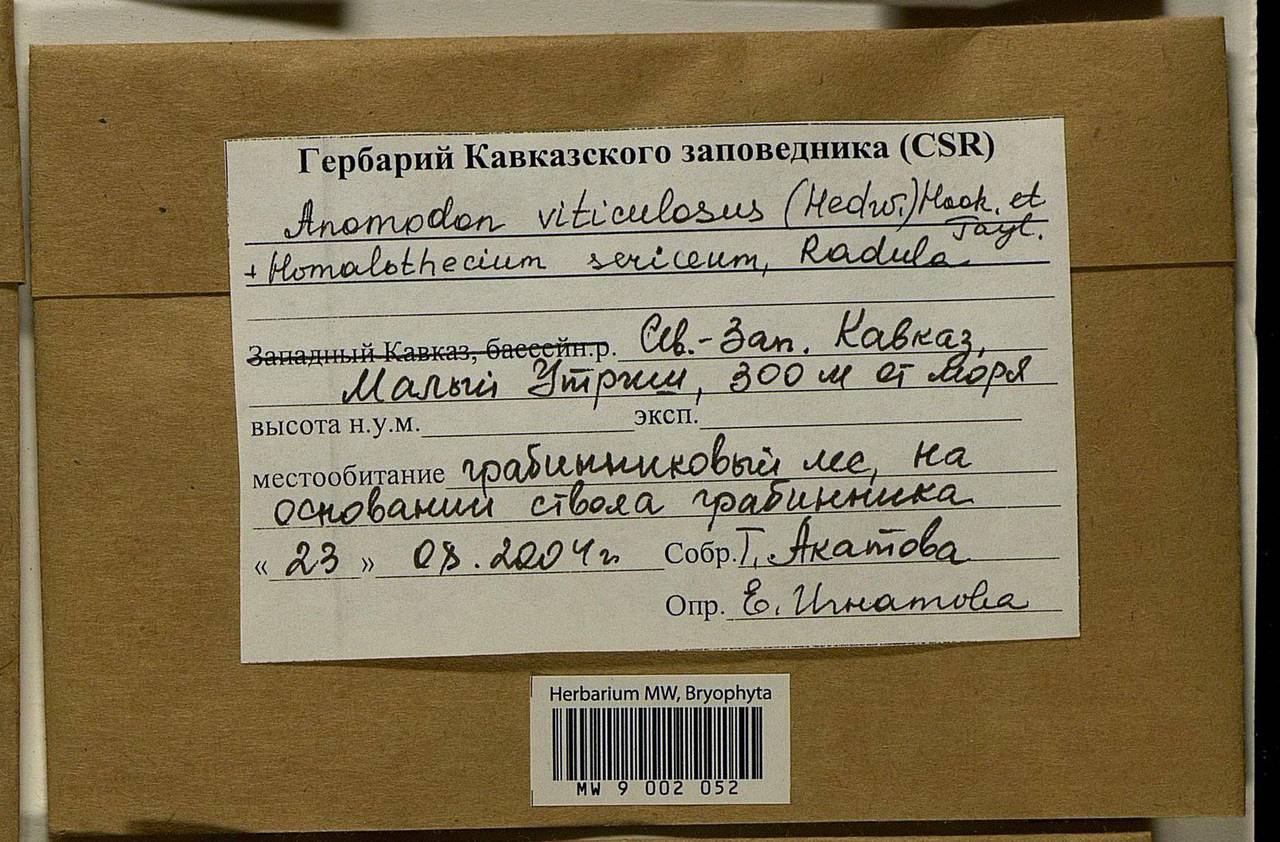 Гербарий Кавказского заповедника (CSR)
Anomodon viticulosus (Hedw.) Hook. et Tayl.
+ Homalothecium sericeum, Radula
Западный Кавказ, бассейн.р. Сев.-Зап. Кавказ,
Малый Утриш, 300 м от моря
высота н.у.м. эксп.
местообитание грабинниковый лес, на
основании ствола грабинника
« 23 » 08.2004 г Собр. Т. Акатова
Опр. Е. Игнатова
Herbarium MW, Bryophyta
MW 9 002 052